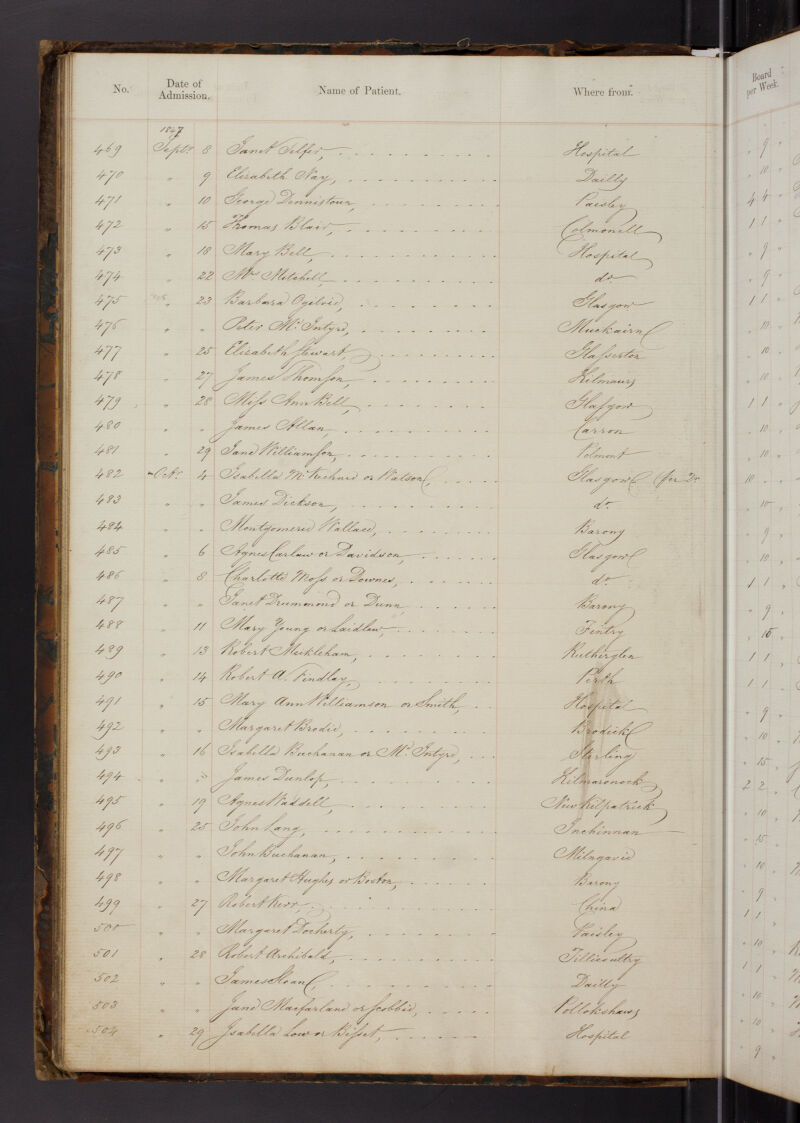 No. Date of Admission. Name of Patient. Where from. Board per Week.
1847
469 Septr. 8 Janet Telfer, Hospital " 9 "
470 " 9 Elizabeth Nay, Dailly " 10 "
471 " 10 George Dennistoun, Paisley 4 4 "
472 " 15 Thomas Blair, Colmonell 1 1 "
473 " 18 Mary Bell, Hospital " 9 "
474 " 22 Mrs Mitchell, do. " 9 "
475 " 23 Barbara Ogilvie, Glasgow 1 1 "
476 " " Peter McIntyre, Muckairn " 10 "
477 " 25 Elizabeth Stewart, Glasserton " 10 "
478 " 27 James Thomson, Kilmaurs " 10 "
479 " 28 Miss Ann Bell, Glasgow 1 1 "
480 " " James Allan, Carron " 10 "
481 " 29 Jane Williamson, Polmont " 10 "
482 Octr. 4 Isabella McKechnie or Watson, Glasgow 10
483 " " James Dickson, do. " 10 "
484 " " Montgomerie Wallace, Barony " 9 "
485 " 6 Agnes Carlaw or Davidson, Glasgow " 10 "
486 " 8 Charlotte Moss or Downes, do. 1 1 "
487 " " Janet Drummond or Dunn Barony " 9 "
488 " 11 Mary Young or Laidlaw, Fintry " 15 "
489 " 13 Robert Meikleham, Rutherglen 1 1 "
490 " 14 Robert A. Findlay, Perth 1 1 "
491 " 15 Mary Ann Williamson or Smith, Hospital " 9 "
492 " " Margaret Brodie, Brodick " 10 "
493 " 16 Isabella Buchanan or McIntyre, Sterling " 15 "
494 " " James Dunlop, Kilmaronock 2 2 "
495 " 19 Agnes Waddell, New Kilpatrick " 10 "
496 " 25 John Lang, Inchinnan " 15 "
497 " " John Buchanan, Milngavie " 10 "
498 " " Margaret Hughes or Boston, Barony " 9 "
499 " 27 Robert Kerr, China 1 1 "
500 " " Margaret Docherty, Paisley " 10 "
501 " 28 Robert Archibald, Tillicoultry 1 1 "
502 " " James Sloan, Dailly " 10 "
503 " " Jane Macfarlane or Scobbie, Pollokshaws " 10 "
504 " 29 Isabella Low or Bisset, Hospital " 9 "